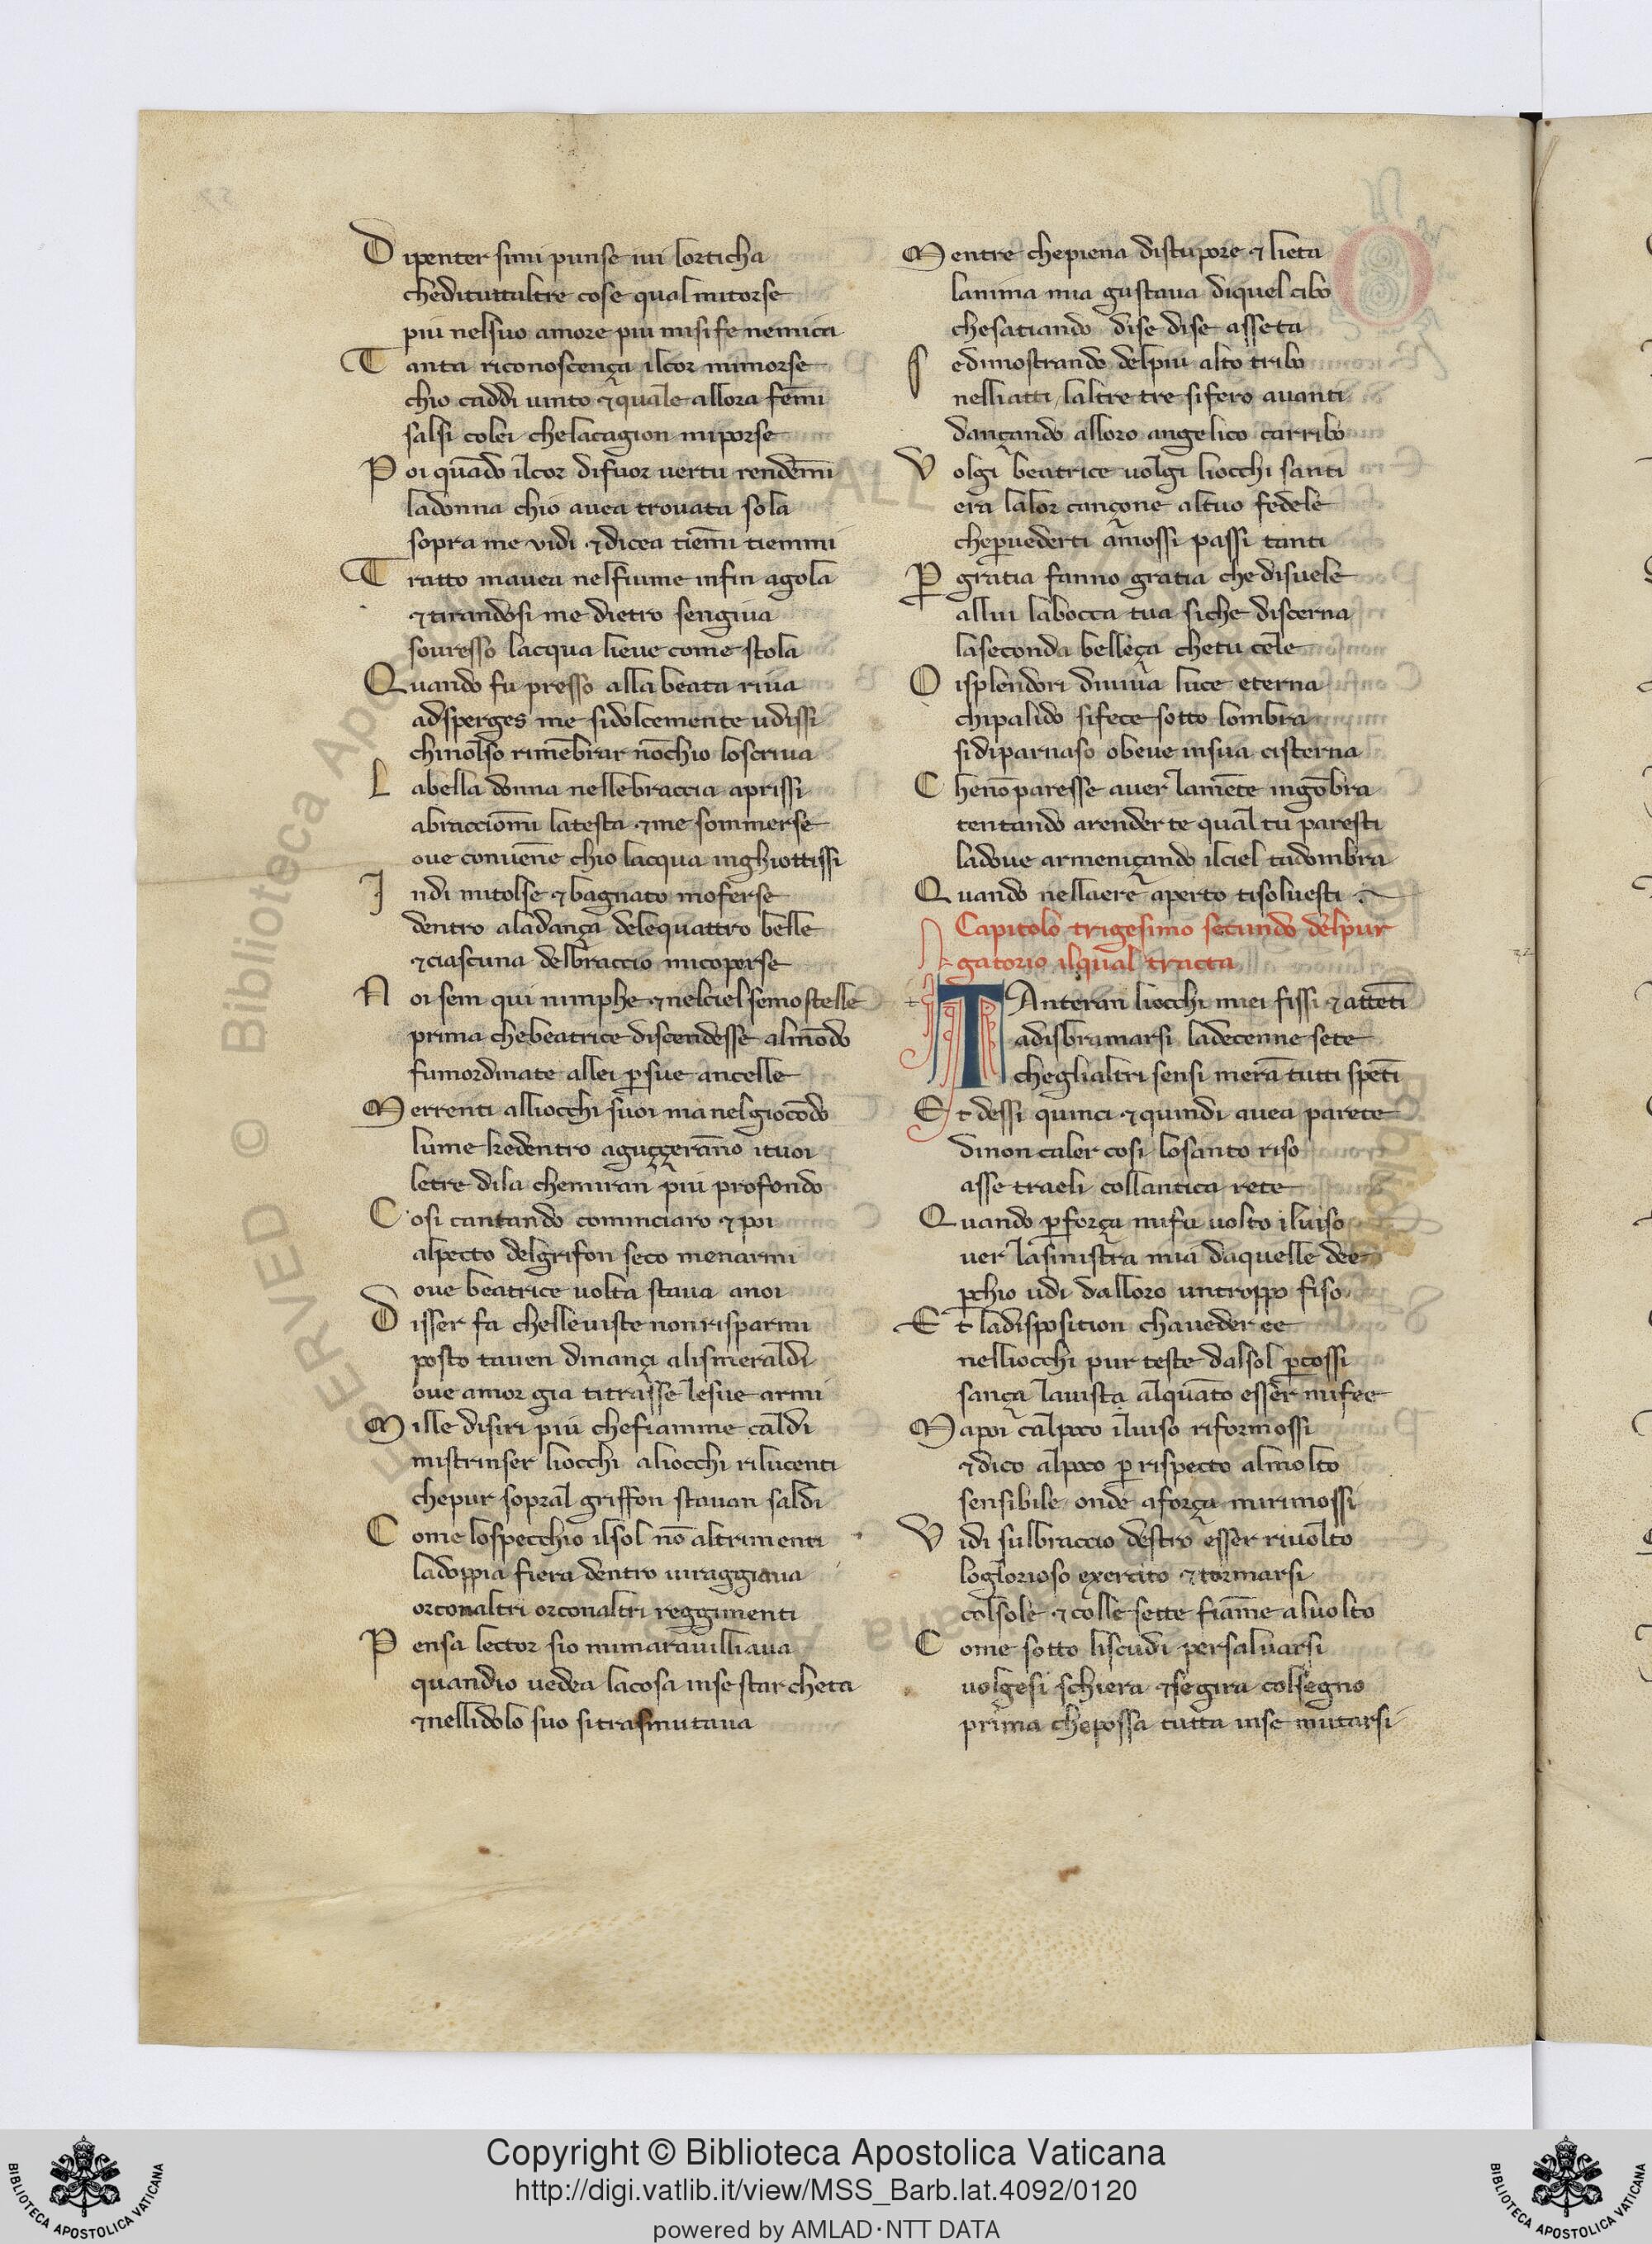 Dipenter simi punse iui lorticha
chedituttaltre cose qual mitorse
piu nelsuo amore piu misife nemica
Tanta riconoscença ilcor mimorse
chio caddi uinto ⁊ quale allora femi
salsi colei chelacagion miporse
Poi quādo ilcor difuor uertu rendēmi
ladonna chio auea trouata sola
sopra me vidi ⁊ dicea tiēmi tiemmi
Tratto mauea nelfiume infin agola
⁊ tirandosi me dietro sengiua
souresso lacqua lieue come stola
Quando fu presso alla beata riua
adsperges me sidolcemente udissi
chinolso rimēbrar nōchio loscriua
Labella donna nellebraccia aprissi
abracciōmi latesta ⁊ me sommerse
oue conuene chio lacqua inghiottissi
Indi mitolse ⁊ bagnato moferse
dentro aladança delequattro belle
⁊ ciascuna delbraccio micoperse
Noi sem qui nimphe ⁊ nelciel semo stelle
prima chebeatrice discendesse almōdo
fumordinate allei ꝑsue ancelle
Merrenti alliocchi suoi ma nelgiocōdo
lume kedentro aguççerāno ituoi
letre dila chemiran piu profondo
Cosi cantando cominciaro ⁊ poi
alpecto delgrifon seco menarmi
oue beatrice uolta staua anoi
Disser fa chelleuiste non risparmi
posto tauen dinançi alismeraldi
oue amor gia titrasse lesue armi
Mille disiri piu chefiamme caldi
mistrinser liocchi aliocchi rilucenti
chepur sopral griffon stauan saldi
Come lospecchio ilsol nō altrimenti
ladoppia fiera dentro uiraggiaua
orconaltri orconaltri reggimenti
Pensa lector sio mimarauilliaua
quandio uedea lacosa inse star cheta
⁊ nellidolo suo sitrasmutaua
Mentre chepiena distupore ⁊ lieta
lanima mia gustaua diquel cibo
chesatiando dise dise asseta
Sedimostrando delpiu alto tribo
nelliatti laltre tre sifero auanti
dançando alloro angelico carribo
Volgi beatrice uolgi liocchi santi
era lalor cançone altuo fedele
cheꝑuederti amossi passi tanti
Ꝑ gratia fanno gratia che disuele
allui labocca tua siche discerna
laseconda belleça chetu cele
O isplendori diuiua luce eterna
chipalido sifece sotto lombra
sidiparnaso obeue insua cisterna
Chenōparesse auer lamēte ingōbra
tentando arender te qual tu paresti
ladoue armeniçando ilciel tadombra
Quando nellaere aperto tisoluesti
Capitolo trigesimo secundo delpur
gatorio ilqual tracta
TAnteran liocchi miei fissi ⁊ attēti
adisbramarsi ladecenne sete
cheglialtri sensi merā tutti spēti
Et dessi quinci ⁊ quindi auea parete
dinon caler cosi losanto riso
asse traeli collantica rete
Quando ꝑforça mifu uolto iluiso
uer lasinistra mia daquelle dee
ꝑchio udi dalloro untroppo fiso
Et ladisposition chaueder ee
nelliocchi pur teste dalsol ꝑcossi
sança lauista alquāto esser mifee
Mapoi calpoco iluiso riformossi
⁊ dico alpoco ꝑ rispecto almolto
sensibile onde aforça mirimossi
Vidi sulbraccio destro esser riuolto
loglorioso exercito ⁊ tornarsi
colsole ⁊ colle sette fiāme aluolto
Come sotto liscudi persaluarsi
uolgesi schiera ⁊ segira colsegno
prima chepossa tutta inse mutarsi
Copyright © Biblioteca Apostolica Vaticana
http://digi.vatlib.it/view/MSS_Barb.lat.4092/0120
powered by AMLAD·NTT DATA